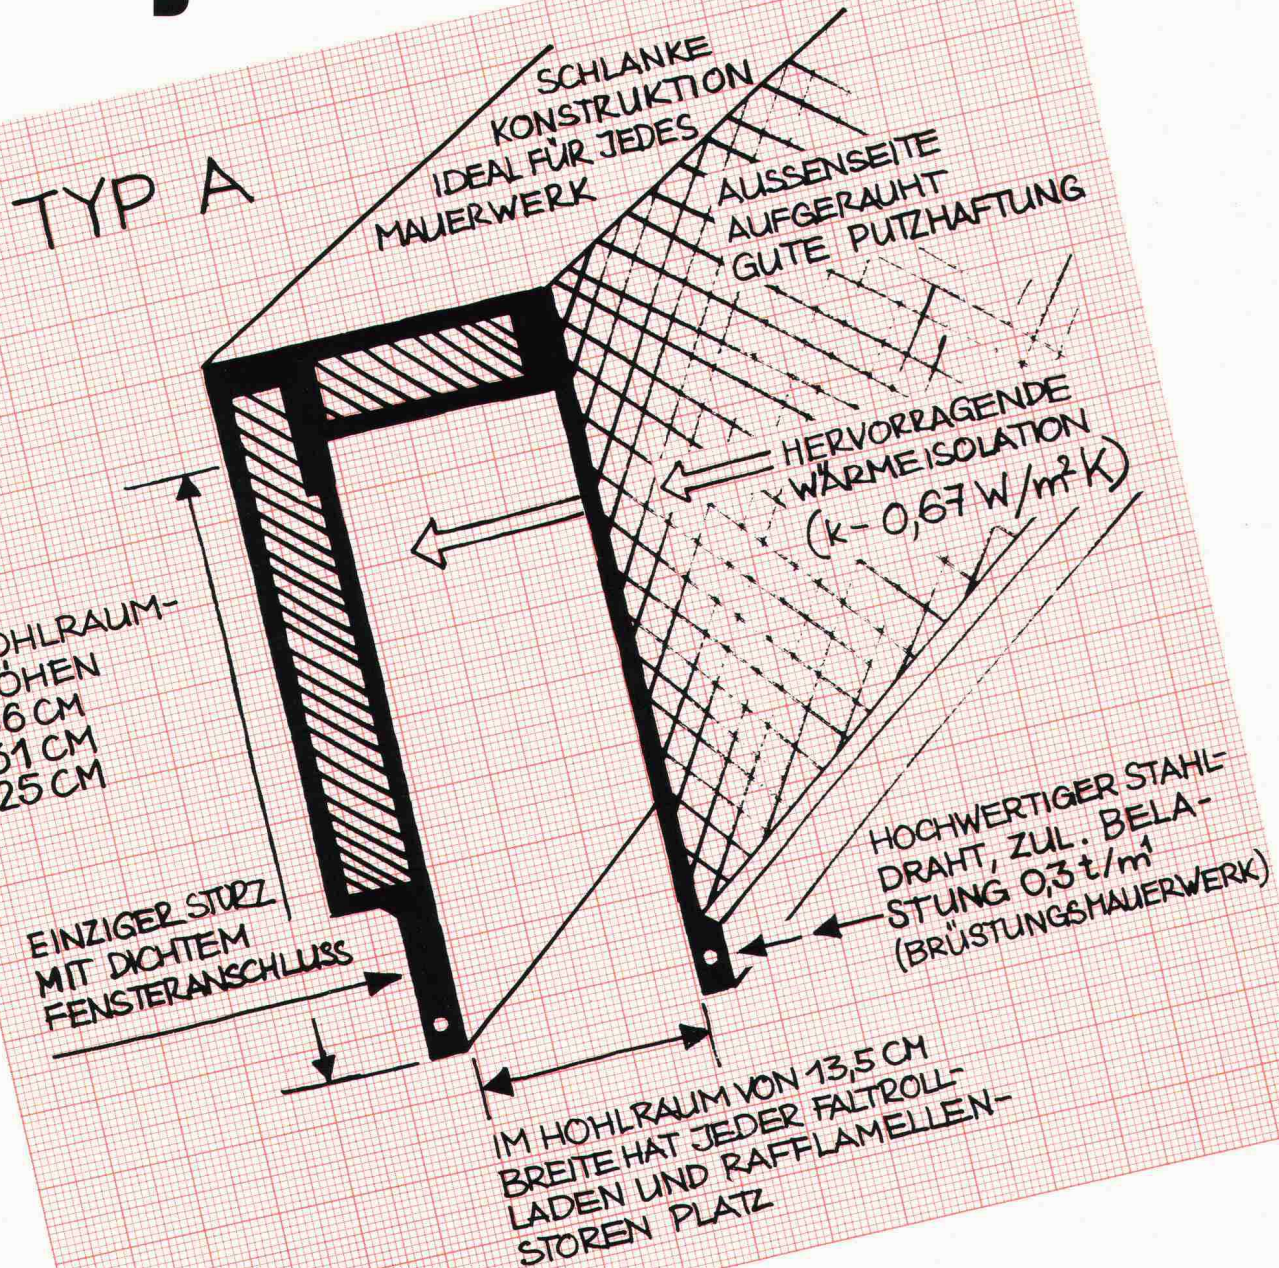 TYP A
SCHLANKE
KONSTRUKTION
IDEAL FÜR JEDES
MAUERWERK
AUSSENSEITE
AUFGERAUHT
GUTE PUTZHAFTUNG
HERVORRAGENDE
WÄRMEISOLATION
(k- 0,67 W/m² K)
OHLRAUM-
ÖHEN
6 CM
51 CM
25 CM
EINZIGER STURZ
MIT DICHTEM
FENSTERANSCHLUSS
HOCHWERTIGER STAHL-
DRAHT, ZUL. BELA-
STUNG 0,3 t/m¹
(BRÜSTUNGSMAUERWERK)
IM HOHLRAUM VON 13,5 CM
BREITE HAT JEDER FALTROLL-
LADEN UND RAFFLAMELLEN-
STOREN PLATZ